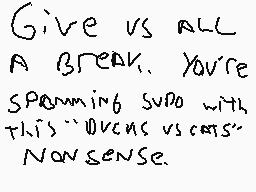 Give us ALL
A Break. You're
spamming sudo with
this "Ducks vs cats"
Nonsense.